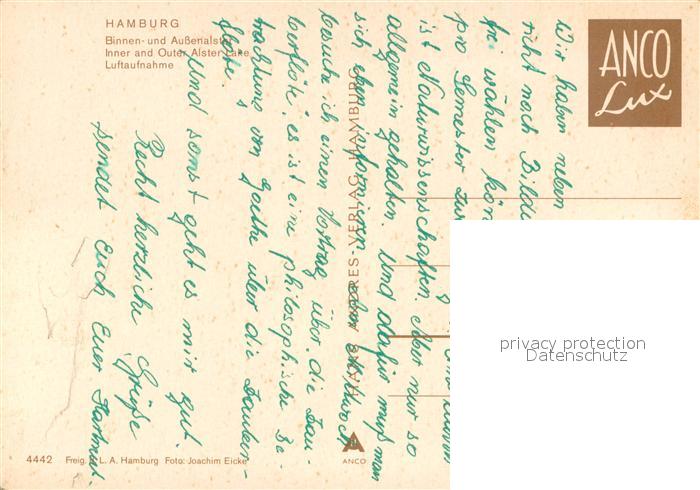 HAMBURG
Binnen- und Außenalster
Inner and Outer Alster Lake
Luftaufnahme
ANCO
Lux
Wir haben neben
richt nach Bildu
wählen kön
pro Semester
ist Naturwissenschaften. Aber nur so
allgemein gehalten. Und dafür muß man
sich eben informieren.
besuche ich einen Vortrag über die Zau-
berflöte, es ist eine philosophische Be-
trachtung von Goethe über die Zauber-
flöte.
Und sonst geht es mir gut.
Recht herzliche Grüße
sendet Euch Euer Hartmut.
HANS ANDRES-VERLAG HAMBURG
A
ANCO
privacy protection
Datenschutz
4442 Freig. L. A. Hamburg Foto: Joachim Eicke